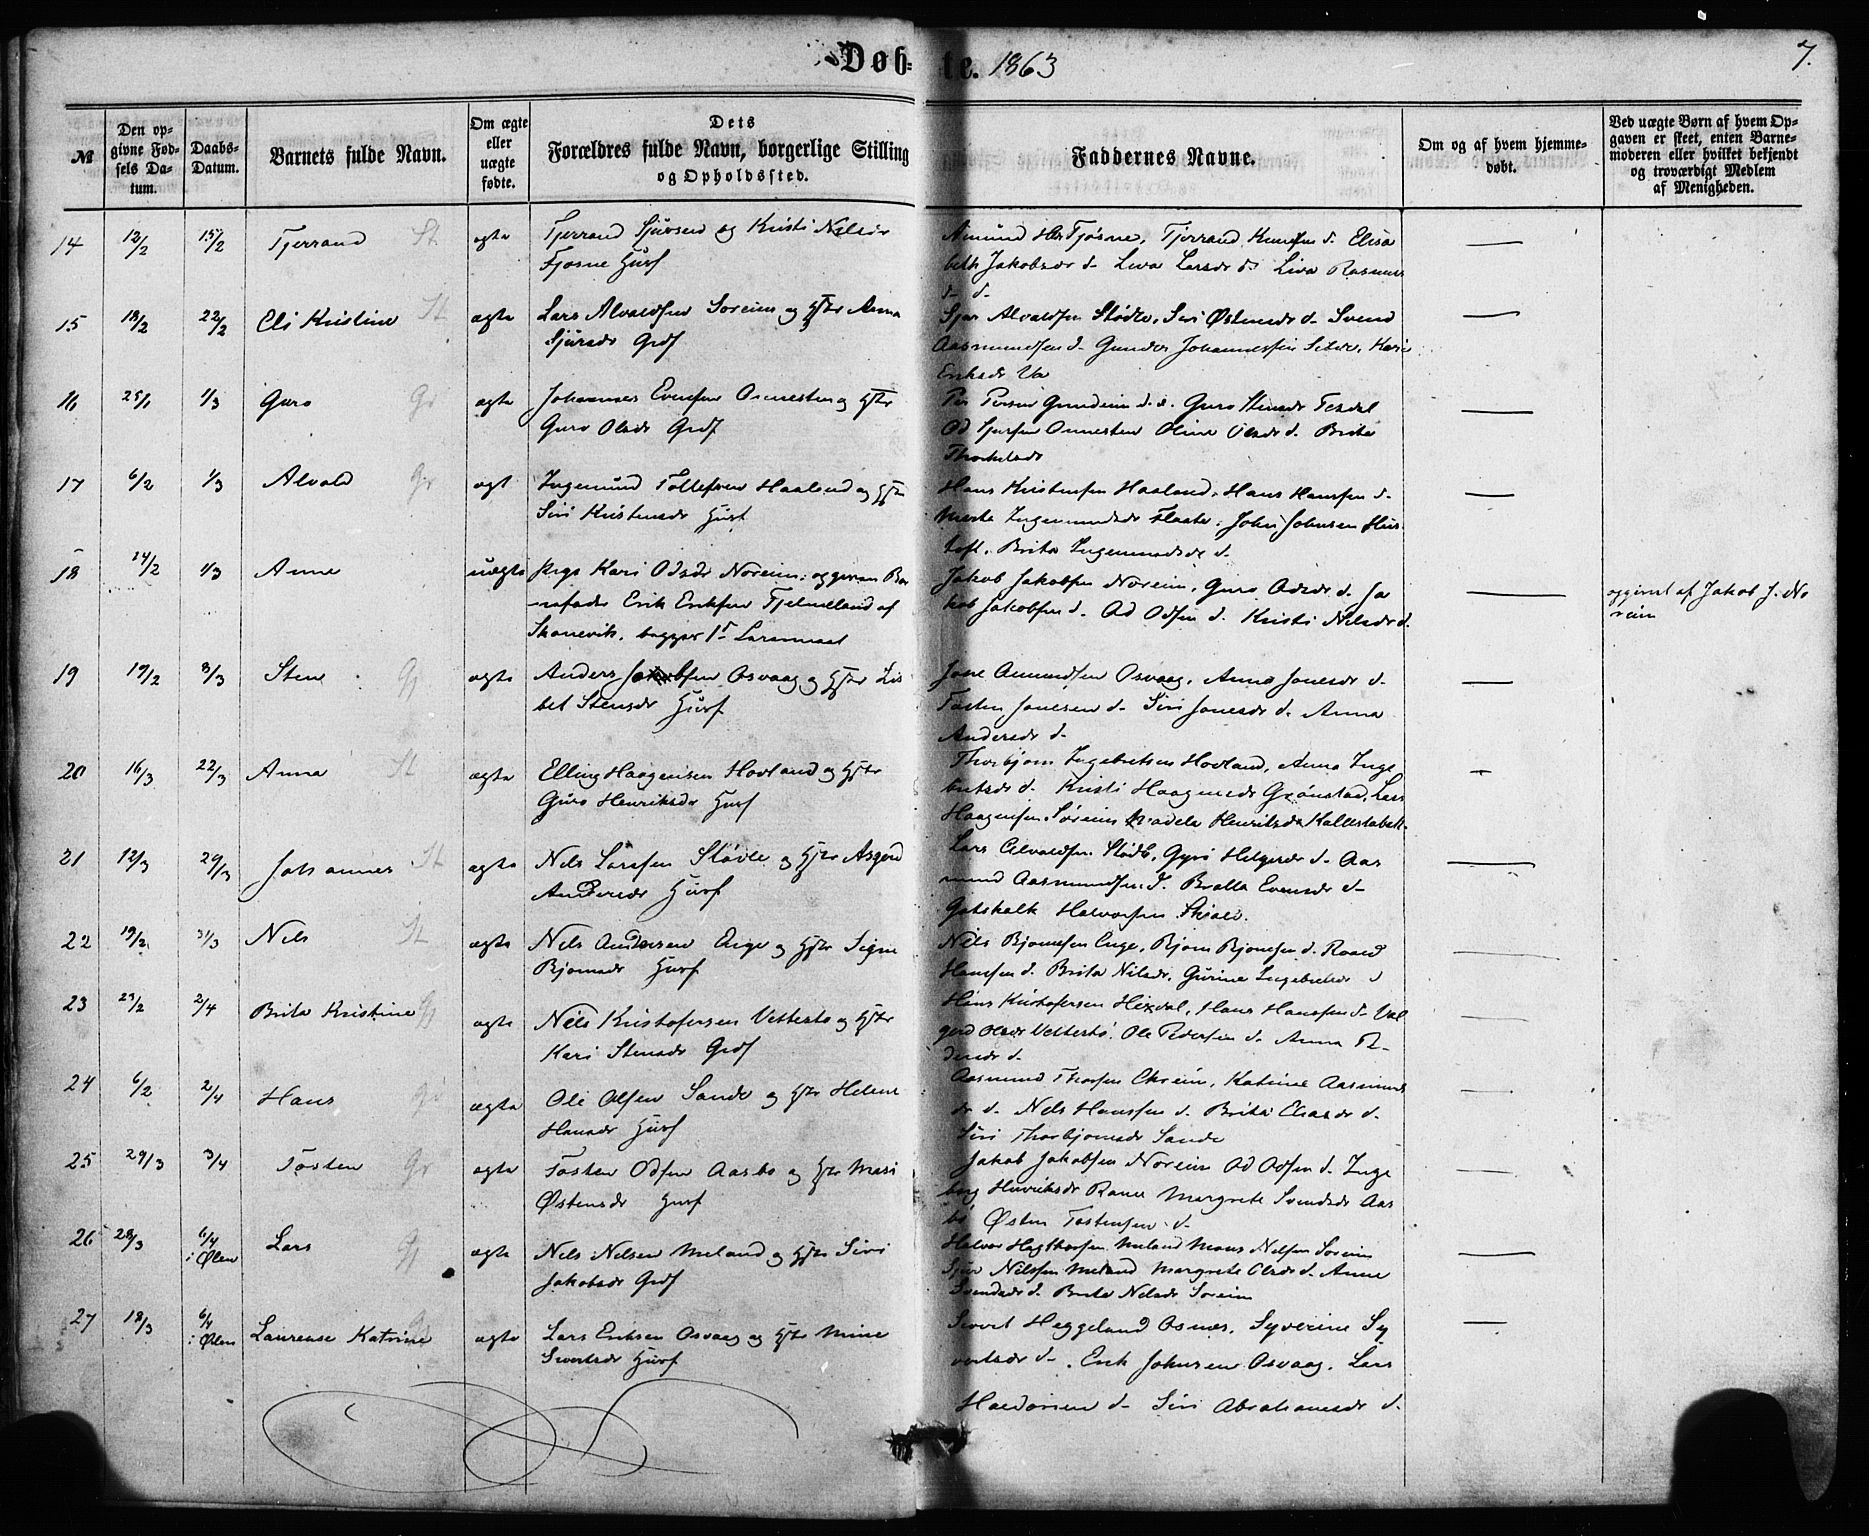 Døb- te. 1863 7.
№
Den op-
givne Fød-
sels Da-
tum.
Daabs-
Datum.
Barnets fulde Navn.
Om ægte
eller
uægte
fødte.
Dets
Forældres fulde Navn, borgerlige Stilling
og Opholdssted.
Faddernes Navne.
Om og af hvem hjemme-
døbt.
Ved uægte Børn af hvem Op-
gaven er skeet, enten Barne-
moderen eller hvilket bekjendt
og troværdigt Medlem
af Menigheden.
14 12/2 15/2 Tjerrand St ægte Tjerrand Sjursen og Kristi Nilsdr
Fjøsne Husf
Amund Fjøsne, Tjerrand Knutsen d. Elisa
beth Jakobsdr d. Liva Larsdr d. Liva Rasmus
d. d. —
15 18/2 22/2 Eli Kristine St ægte Lars Alvaldsen Soreim og Hstr Anna
Sjursdr Grdf
Sjur Alvaldsen Stødle, Siri Østensdr d. Svend
Aasmundsen d. Gunder Johannessen Kari
Eriksdr —
16 25/1 1/3 Guro Gr ægte Johannes Evensen Ormesten og Hstr
Guro Olsdr Grdf
Per Persen Grindeim d. Guro Stensdr
Od Ormesten Oline Olsdr d. Brita
—
17 6/2 1/3 Alvald Gr ægt Ingemund Tollefsen Haaland og Hstr
Siri Kristensdr Husf
Hans Kristensen Haaland, Hans Hansen d.
Marta Ingemundsdr John Johnsen Hus
toft. Brita Ingemundsdr d. —
18 24/2 1/3 Anne uægte Pige Kari Odsdr Noreim: opgiven Bar
nefader Erik Eriksen Fjelmeland af
Skonevik. begges 1ste Leiermaal
Jakob Jakobsen Noreim, Guro Odsdr d. Ja
kob Jakobsen d. Od Odsen d. Kristi Nilsdr d. —
opgivet af Jakob J. No
reim
19 19/2 8/3 Sten Gj ægte Anders Jakobsen Osvaag og Hstr Lis
bet Stensdr Husf
Jone Amundsen Osvaag, Anna Jonesdr d.
Tosten Jonesen d. Siri Jonesdr d. Anna
Andersdr d. —
20 16/3 22/3 Anna St ægte Elling Haagensen Hovland og Hstr
Guro Henriksdr Husf
Thorbjørn Ingebretsen Hovland, Anna Inge
bretsdr d. Kristi Haagensdr Grønstad, Lars
Haagensen Søreim Madela Henriksdr —
21 12/3 29/3 Johannes St ægte Nils Larssen Støvle og Hstr Asgerd
Andersdr Husf
Lars Alvaldsen Stødle, Gyri Helgesdr d. Aas
mund Aasmundsen d. Evensdr d.
Gotskalk Halvorsen —
22 19/2 31/3 Nils St ægte Nils Andersen Eige og Hstr Signe
Bjornsdr Husf
Nils Bjornsen Enge, Bjørn Bjornsen d. Roald
Hansen d. Brita Nilsdr. Gurine Ingebretsdr d —
23 23/2 2/4 Brita Kristine Gj ægte Nils Kristofersen Vettestø og Hstr
Kari Stensdr Grdf
Hans Kristofersen Hixdal, Hans Hansen d. Val
gerd Olsdr Vettestø. Ole Pedersen d. Anna Pe
dersdr d. —
24 6/2 2/4 Hans Gr ægte Ole Olsen Sande og Hstr Helene
Hansdr Husf
Aasmund Thorsen Ekreim, Katrine Aasmunds
dr d. Nels Hanssen d. Brita Eliasdr d.
Siri Thorbjornsdr Sande —
25 29/3 3/4 Tosten Gr ægte Tosten Odsen Aasbo og Hstr Mari
Østensdr Husf
Jakob Jakobsen Noreim Od Odsen d. Inge
borg Henriksdr Margrete Svendsdr Aas
bø Østen Tostensen d. —
26 28/3 6/4
i Ølen Lars Gj ægte Nels Nelsen Meland og Hstr Siri
Jakobsdr Grdf
Halvor Meland Mons Nelsen Soreim
Sjur Nilssen Meland Margrete Olsdr d. Anne
Svendsdr d. Brita Nelsdr Soreim —
27 18/3 6/4
i Ølen Laurense Katrine ægte Lars Eriksen Osvaag og Hstr Mine
Sivertsdr Husf
Sivert Heggeland Osnes, Syverine Sy
vertsdr d. Erik Johnsen Osvaag. Lars
Haldorsen d. Siri Abrahamsdr d. —